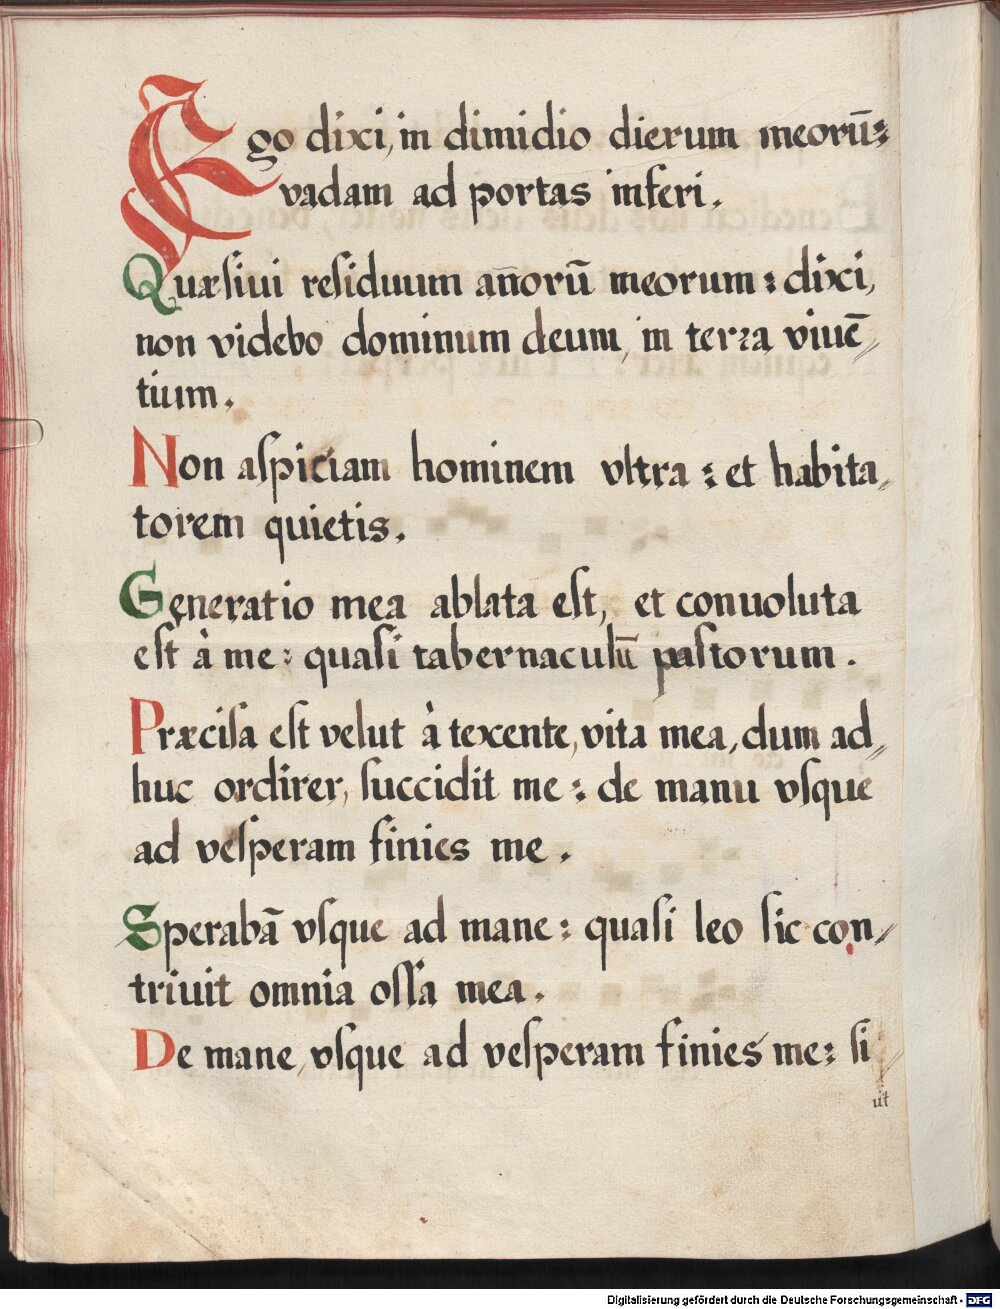 Ego dixi, in dimidio dierum meorū:
vadam ad portas inferi.
Quæsiui residuum añorū meorum: dixi,
non videbo dominum deum, in terra viuē-
tium.
Non aspiciam hominem vltra: et habita-
torem quietis.
Generatio mea ablata est, et conuoluta
est à me: quasi tabernaculū pastorum.
Præcisa est velut à texente, vita mea, dum ad-
huc ordirer, succidit me: de manu vsque
ad vesperam finies me.
Sperabā vsque ad mane: quasi leo sic con-
triuit omnia ossa mea.
De mane, vsque ad vesperam finies me: si-
ut
Digitalisierung gefördert durch die Deutsche Forschungsgemeinschaft - DFG